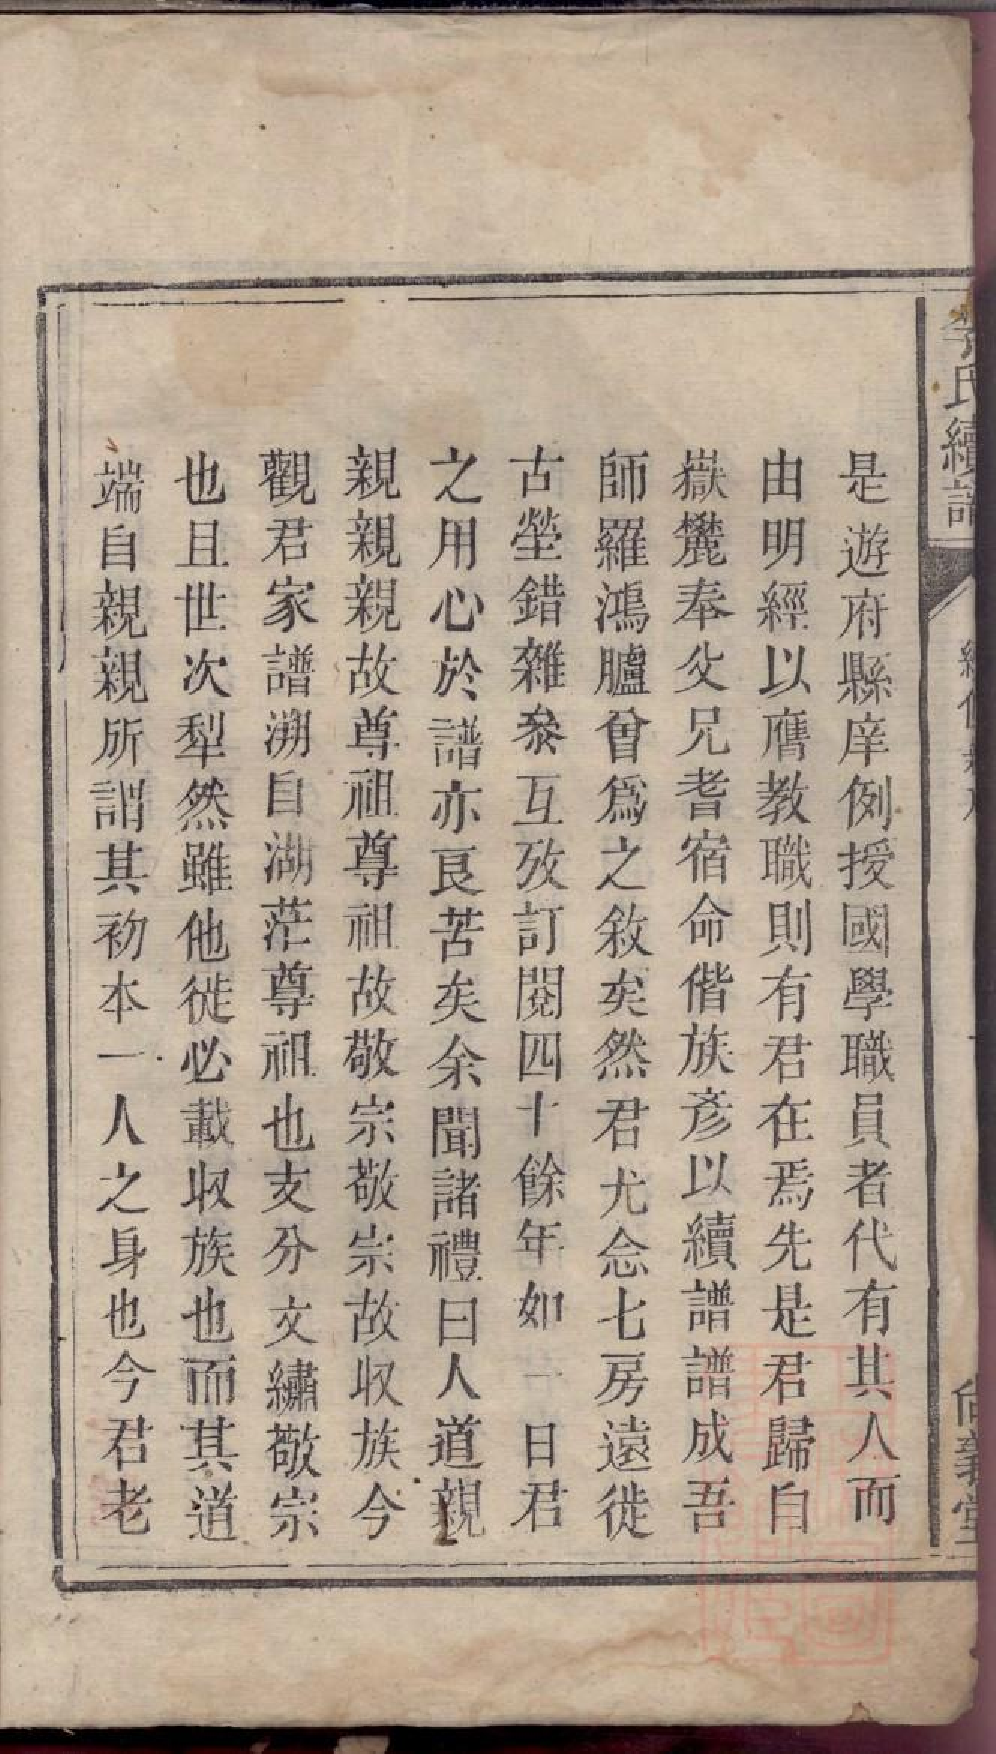 李氏續譜
尚義堂
是遊府縣庠例授國學職員者代有其人而
由明經以膺教職則有君在焉先是君歸自
嶽麓奉父兄耆宿命偕族彥以續譜譜成吾
師羅鴻臚曾爲之敘矣然君尤念七房遠徙
古塋錯雜叅互攷訂閱四十餘年如一日君
之用心於譜亦良苦矣余聞諸禮曰人道親
親親親故尊祖尊祖故敬宗敬宗故収族今
觀君家譜溯自湖茫尊祖也支分文繡敬宗
也且世次犁然雖他徙必載収族也而其道
端自親親所謂其初本一人之身也今君老